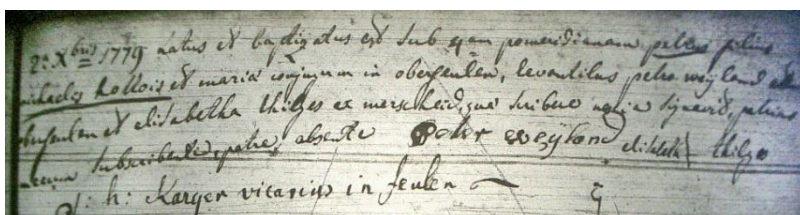 2: Xbris 1779 natus et baptizatus est sub 9am pomeridianam petrus filius
michaelis hollois et maria conjugum in oberfeulen, levantibus petro weyland
oberfeulen et elisabetha thilges ex merscheid, quæ scribere signavit, petrus
mecum subscribente, patre, absente Peter weylond elisabeth thilges
j: h: Karger vicarius in feulen